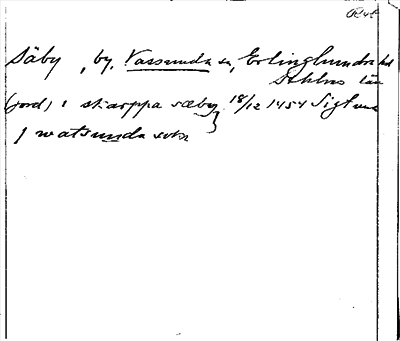 Säby, by, Vassunda sn, Erlinghundra hd
Sthlms län
(jord) i skarppa sæby 18/12 1454 Sigtuna
j watsunda sokn